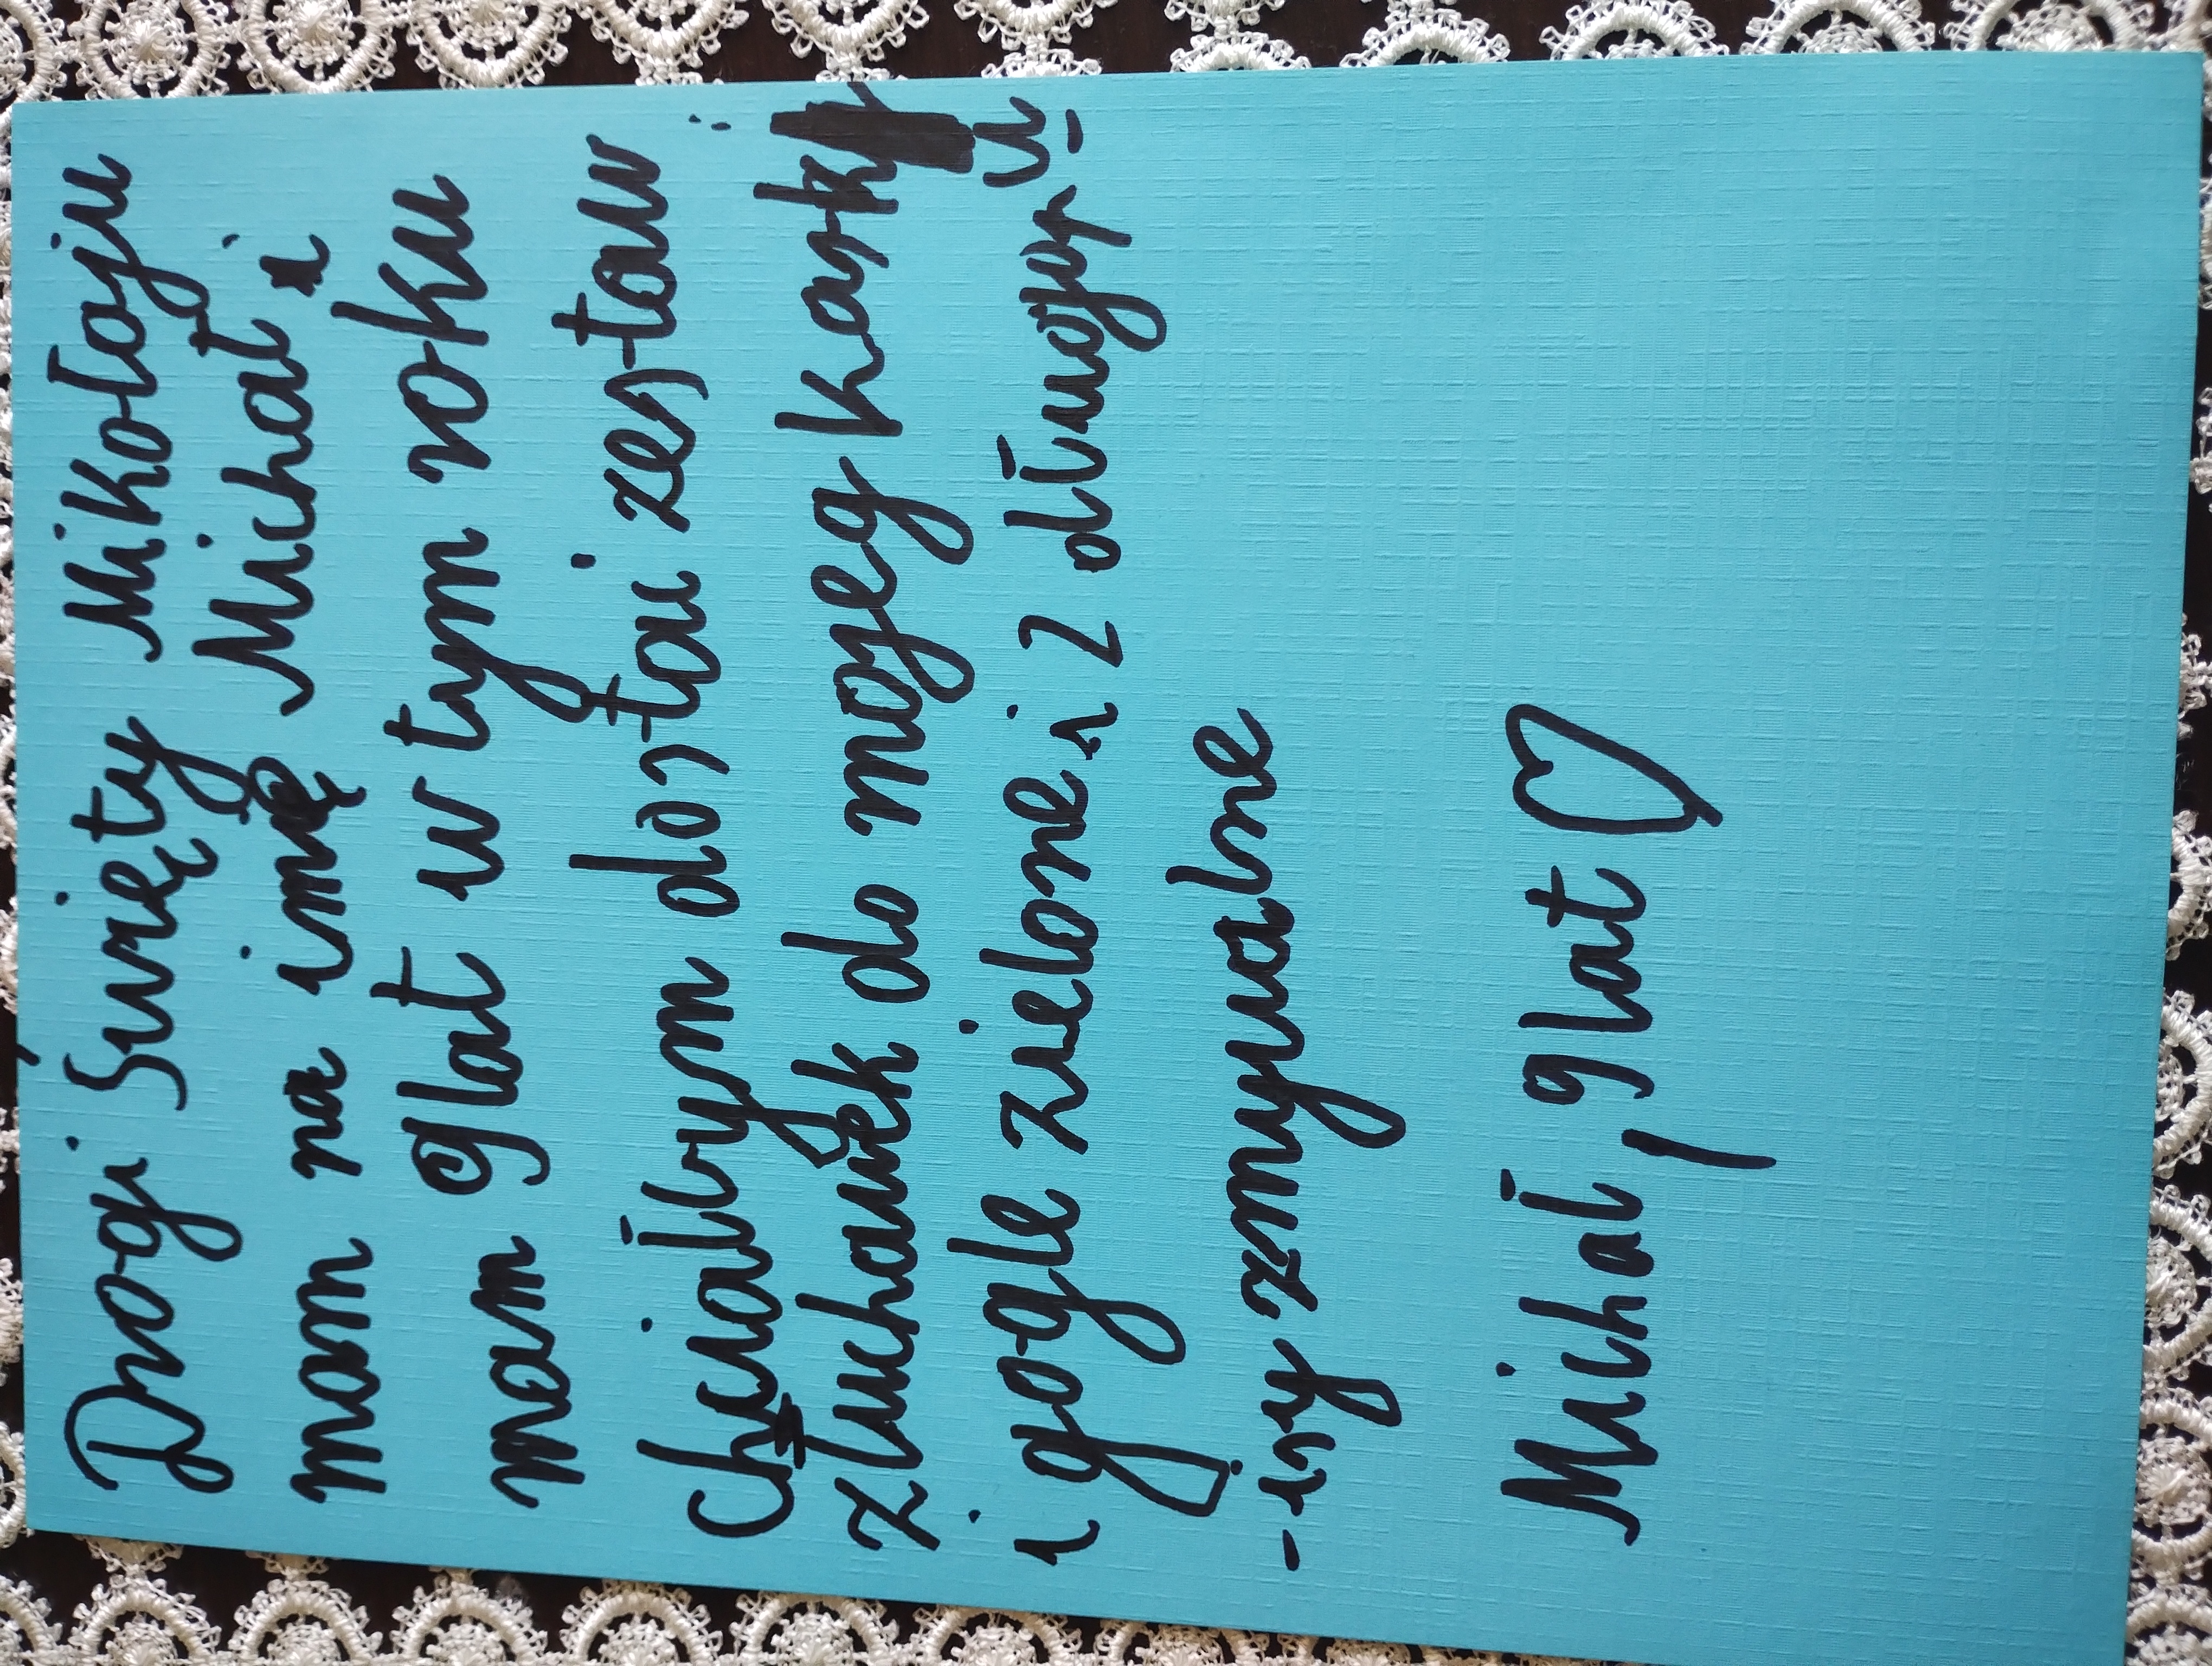 Drogi Święty Mikołaju
mam na imię Michał i
mam 9lat w tym roku
Chciałbym dostai zestaw :
złuchawek do mojeg kask
i gogle zielone i 2 długop-u
-isy zmywalne
Michał, 9lat ♡